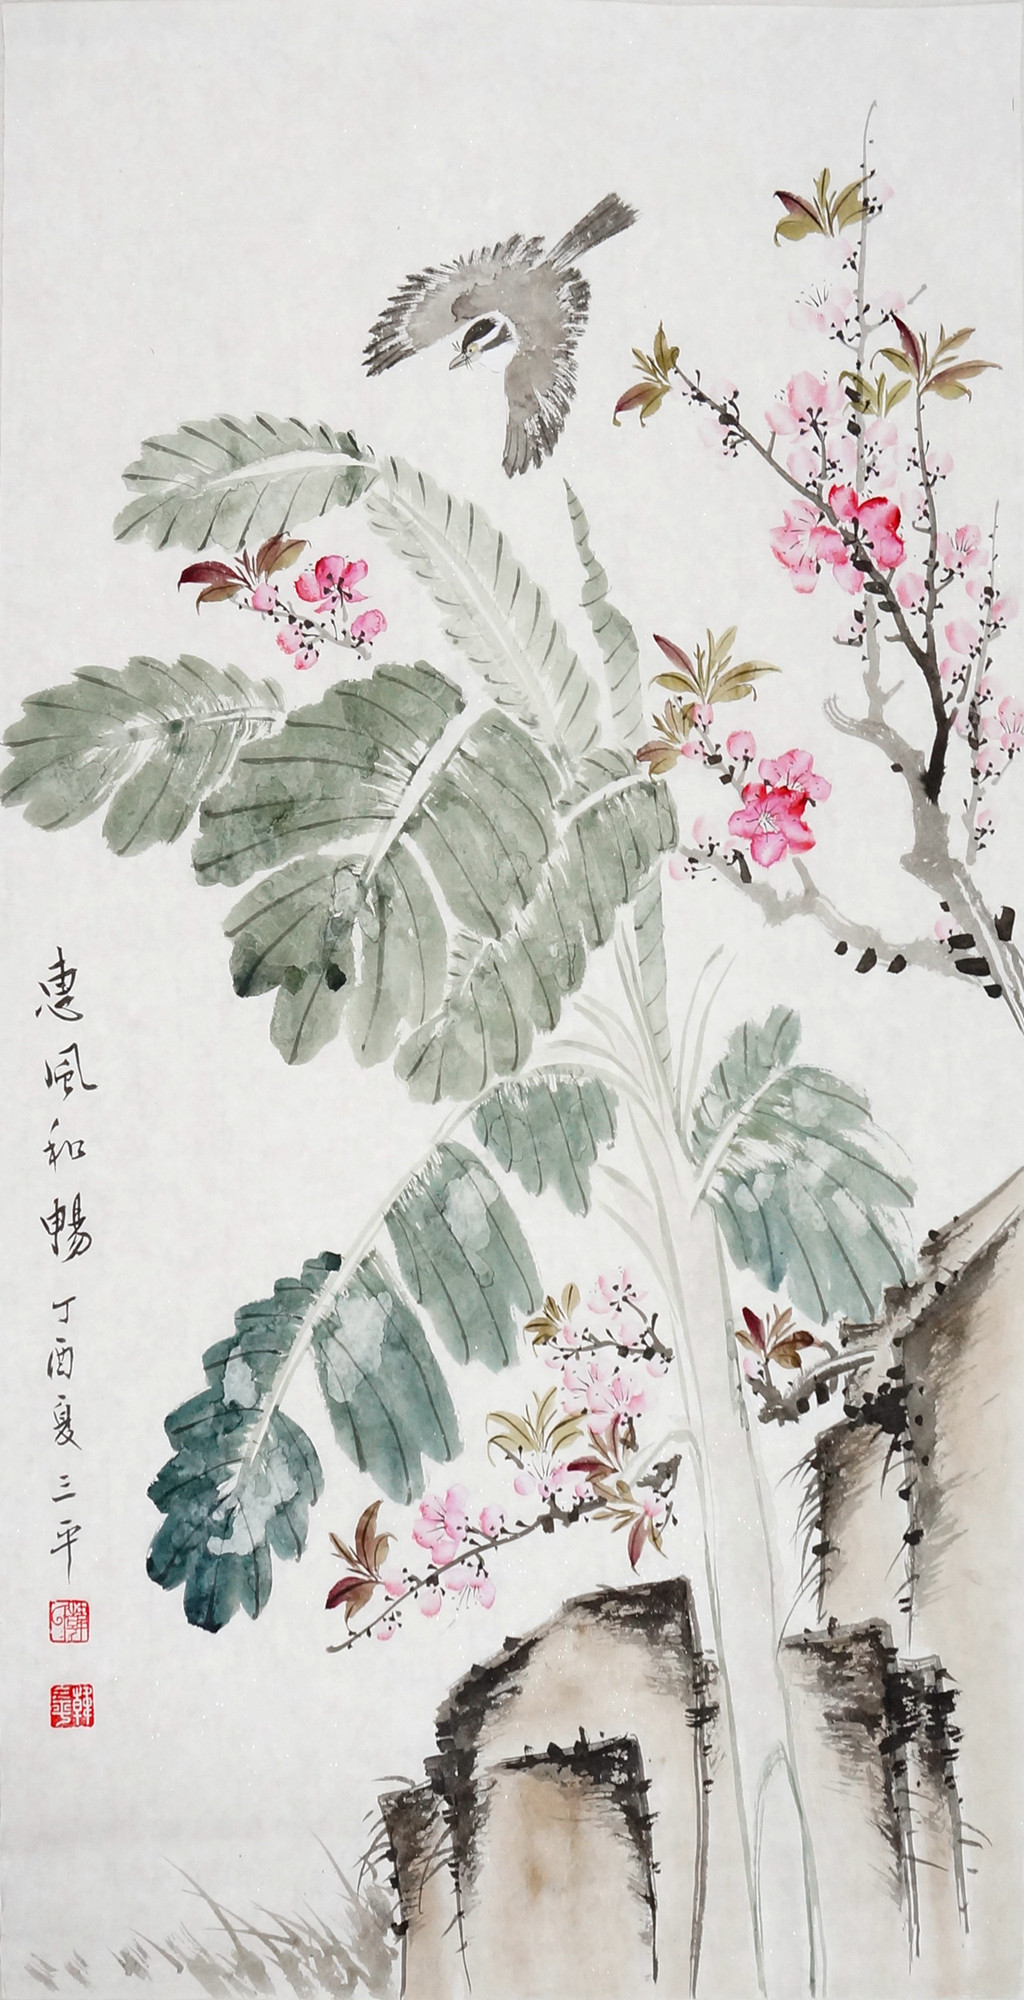 惠風和暢 丁酉夏 三平